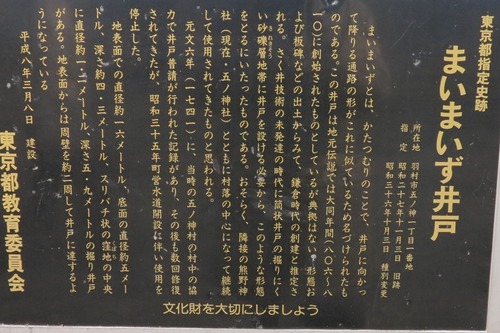 東京都指定史跡
まいまいず井戸
所在地　羽村市五ノ神一丁目一番地
指定　昭和二十七年十一月三日　旧跡
昭和三十六年十月三日　種別変更
まいまいずとは、かたつむりのことで、井戸に向かっ
て降りる通路の形がこれに似ているため名づけられたも
のである。この井戸は地元伝説では大同年間（八〇六～八
一〇）に創始されたものとしているが典拠はない。形態お
よび板碑などの出土からみて、鎌倉時代の創建と推定さ
れる。さく井技術の未発達の時代に筒状井戸の掘りにく
い砂礫層地帯に井戸を設ける必要から、このような形態
をとるにいたったものである。おそらく、隣接の熊野神
社（現在・五ノ神社）とともに村落の中心になって継続
して使用されてきたものと思われる。
元文六年（一七四一）に、当時の五ノ神村の村中の協
力で井戸普請が行われた記録があり、その後も数回修復
されてきたが、昭和三十五年町営水道開設に伴い使用を
停止した。
地表面での直径約一六メートル、底面の直径約五メー
トル、深さ約四・三メートル、スリバチ状の窪地の中央
に直径約一・二メートル、深さ五・九メートルの掘り井戸
がある。地表面からは周壁を約二周して井戸に達するよ
うになっている
平成八年三月八日　建設
東京都教育委員会
文化財を大切にしましょう